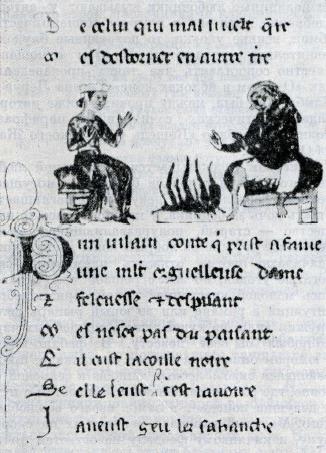 D e celui qui mal li velt q̄re
M es destorner en autre t̄re
D un vilain conte q̄ prist a fame
U ne ml̄t orguelleuse dame
E t felenesse ⁊ despisant
M es ne sot pas du paisant
Q il eust la coille noire
Se elle seust c'est la voire
J a n'eust geu lez sa hanche